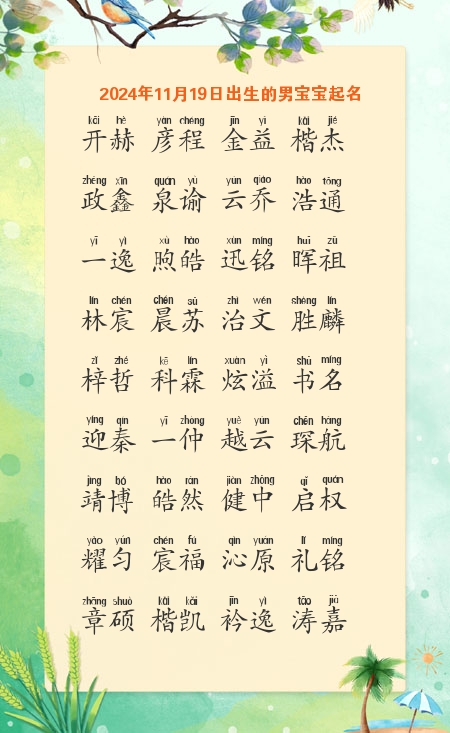 2024年11月19日出生的男宝宝起名
kāi hè yàn chéng jīn yì kǎi jié
开赫 彦程 金益 楷杰
zhèng xīn quán yù yún qiáo hào tōng
政鑫 泉谕 云乔 浩通
yī yì xù hào xùn míng huī zǔ
一逸 煦皓 迅铭 晖祖
lín chén chén sū zhì wén shèng lín
林宸 晨苏 治文 胜麟
zǐ zhé kē lín xuàn yì shū míng
梓哲 科霖 炫溢 书名
yíng qín yī zhòng yuè yún chēn háng
迎秦 一仲 越云 琛航
jìng bó hào rán jiàn zhōng qǐ quán
靖博 皓然 健中 启权
yào yún chén fú qìn yuán lǐ míng
耀匀 宸福 沁原 礼铭
zhāng shuò kǎi kǎi jīn yì tāo jiā
章硕 楷凯 衿逸 涛嘉